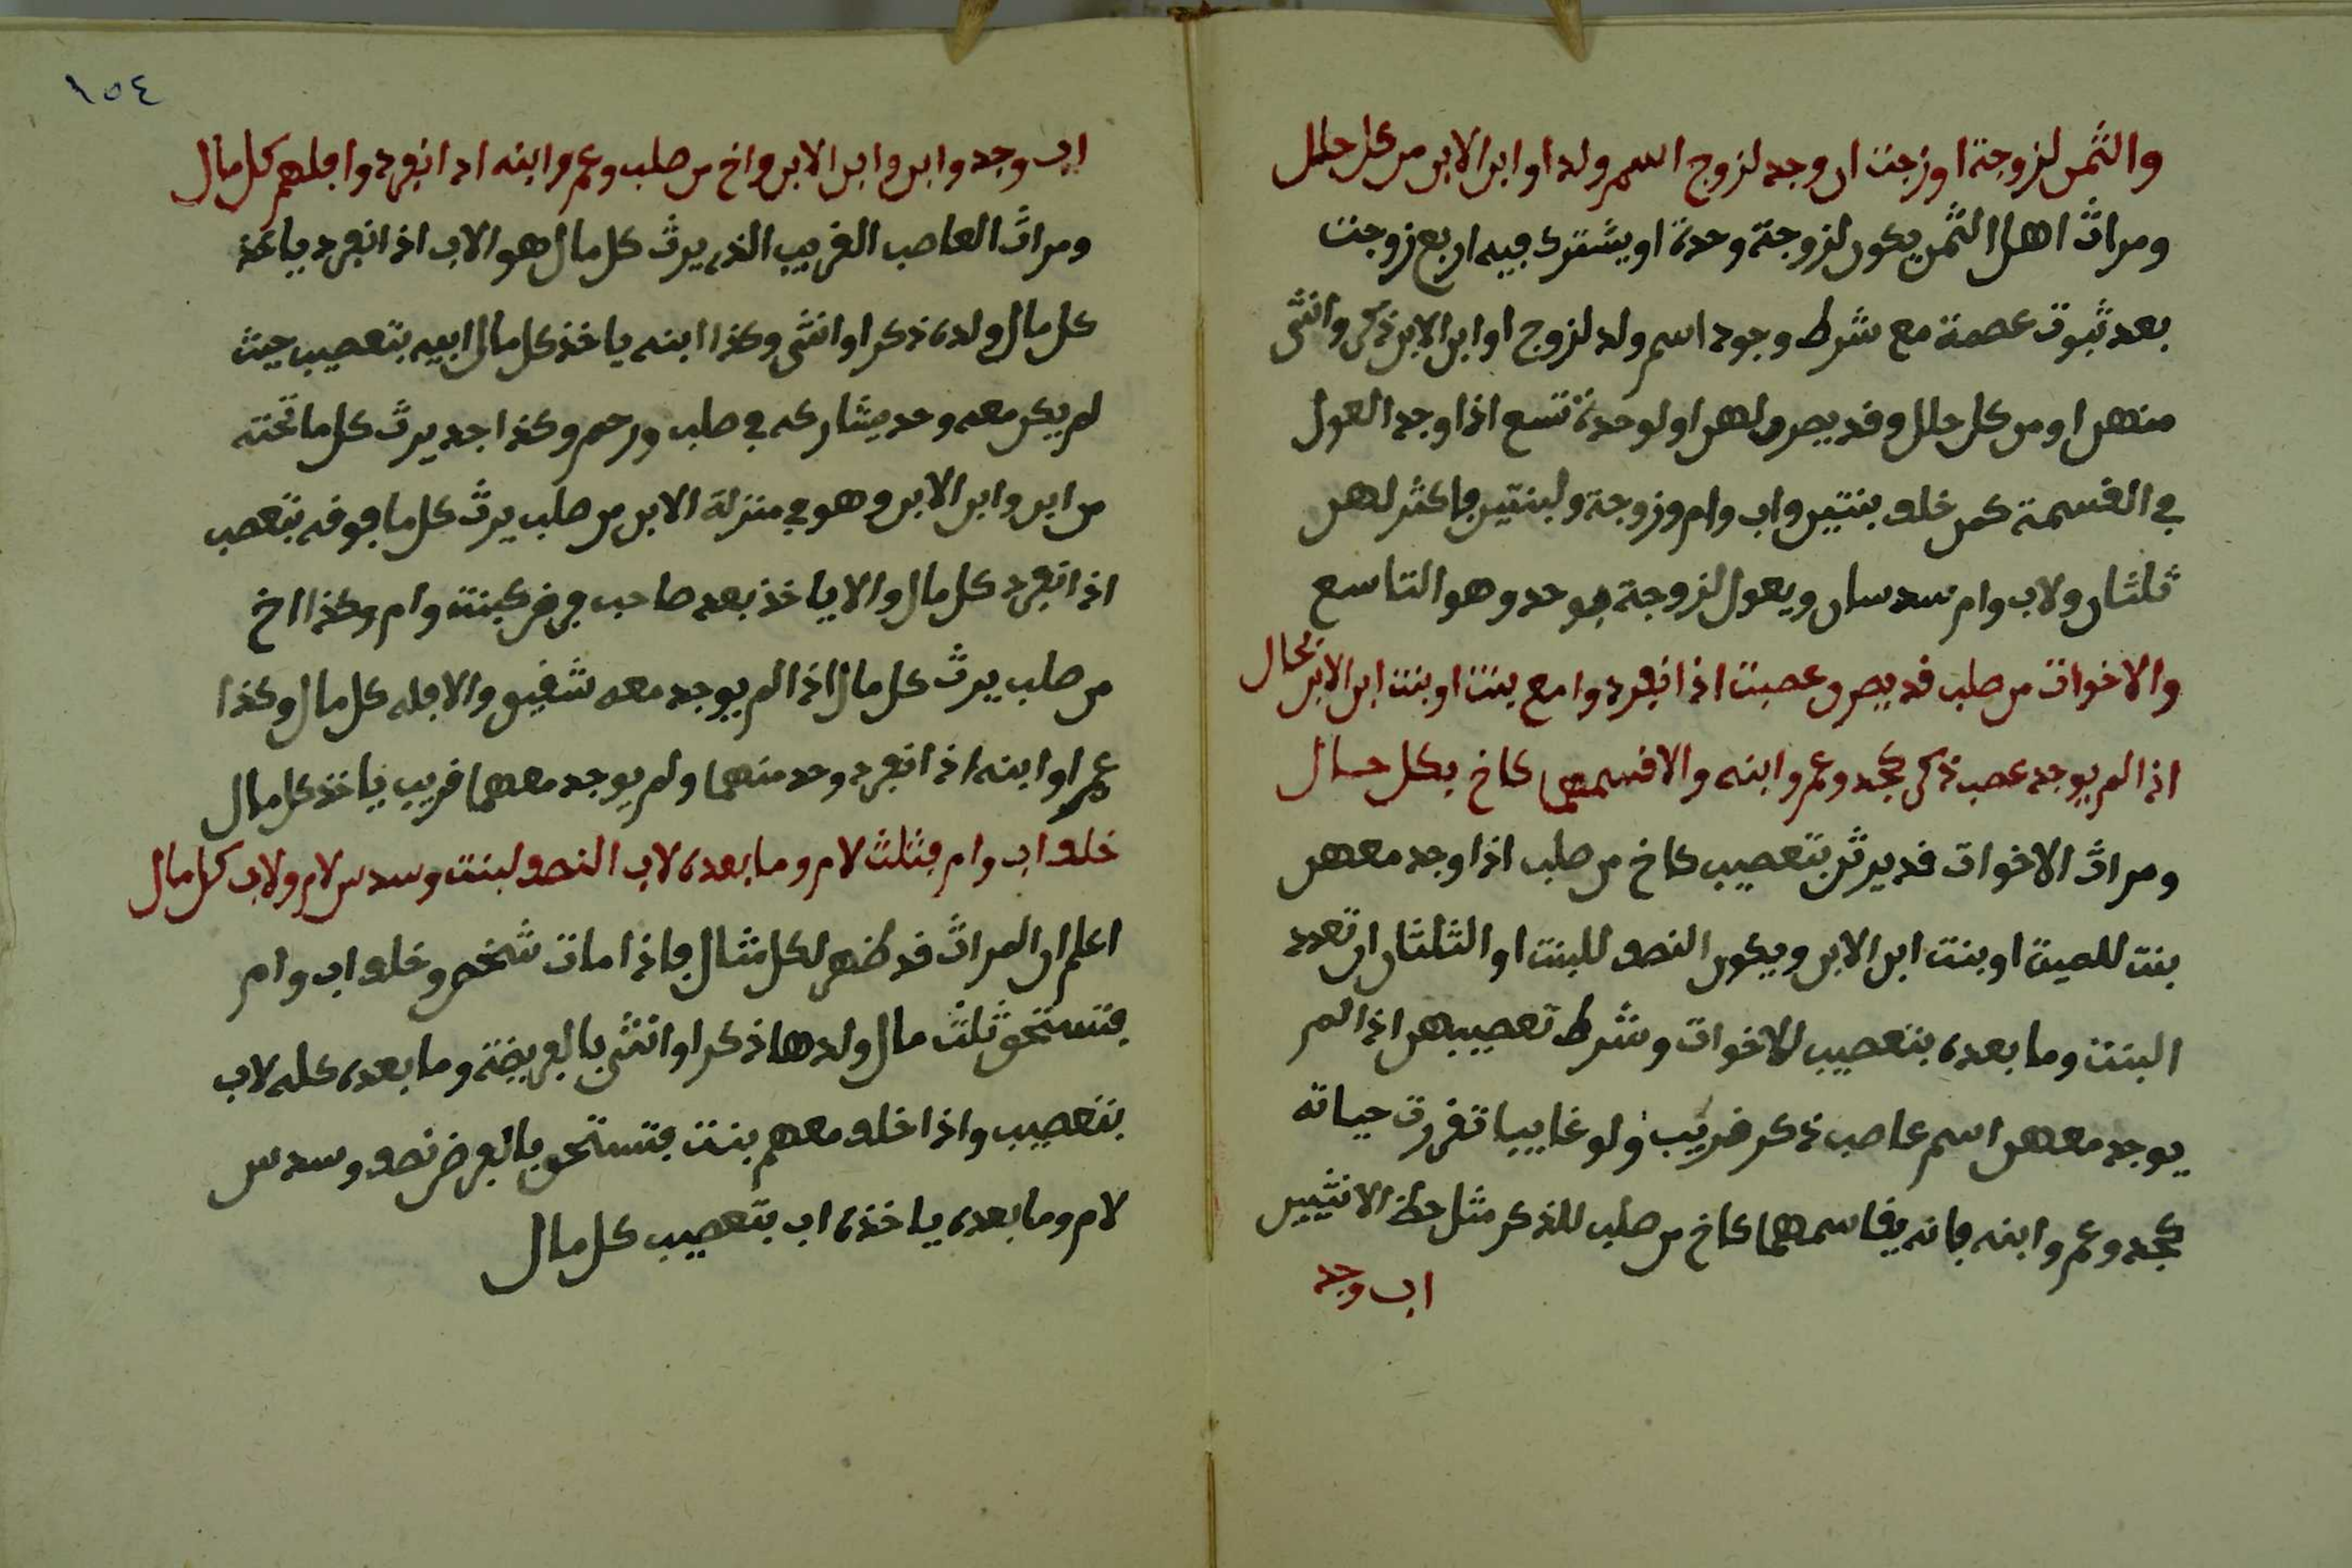 والثمن لزوجة او زجت ان وجد لزوج اسم ولد او ابن الابن من كل حلل
ومراث اهل الثمن يكون لزوجة وحدة او يشترك فيه اربع زوجت
بعد ثبوت عصمة مع شرط وجود اسم ولد لزوج او ابن الابن ذكر وانثى
منهن او من كل حلل وقد يصر لهن او لوحدة تسع اذا وجد العول
في القسمة كمن خلف بنتين واب وام وزوجة ولبنتين فاكثر لهن
ثلثان ولاب وام سدسان ويعول لزوجة بوحد وهو التاسع
والاخوات من صلب قد يصر عصبت اذا انفردوا مع بنت او بنت ابن الابن بحال
اذا لم يوجد عصب ذكر كجد وعم وابنه والا قسمهن كاخ بكل حال
ومراث الاخوات قد يرثن بتعصيب كاخ من صلب اذا وجد معهن
بنت للميت او بنت ابن الابن ويكون النصف للبنت او الثلثان ان تعدد
البنت وما بعده بتعصيب للاخوات وشرط تعصيبهن اذا لم
يوجد معهن اسم عاصب ذكر قريب ولو غايبا تقررت حياته
كجد وعم وابنه فانه يقاسمهما كاخ من صلب للذكر مثل حظ الانثيين
اب وجد
١٥٤
اب وجد وابن وابن الابن واخ من صلب وعم وابنه اذا انفردوا فلهم كل مال
ومراث العاصب القريب الذي يرث كل مال هو الاب اذا انفرد ياخذ
كل مال ولده ذكرا او انثى وكذا ابنه ياخذ كل مال ابيه بتعصيب حيث
لم يكن معه وحد يشاركه في صلب ورحم وكذا جد يرث كل ما تحته
من ابن وابن الابن وهو في منزلة الابن من صلب يرث كل ما فوقه بتعصب
اذا انفرد كل مال والا ياخذ بعد صاحب فرض كبنت وام وكذا اخ
من صلب يرث كل مال اذا لم يوجد معه شقيق والا فله كل مال وكذا
عم او ابنه اذا انفرد وحد منهما ولم يوجد معهما قريب ياخذ كل مال
خلف اب وام فثلث لام وما بعده لاب النصف لبنت وسدس لام ولاب كل مال
اعلم ان المراث قد ظهر لكل مثال فاذا مات شخص وخلف اب وام
فتستحق ثلث مال ولدها ذكرا او انثى بالفريضة وما بعده كله لاب
بتعصيب واذا خلف معهم بنت فتستحق بالفرض نصف وسدس
لام وما بعده ياخذه اب بتعصيب كل مال